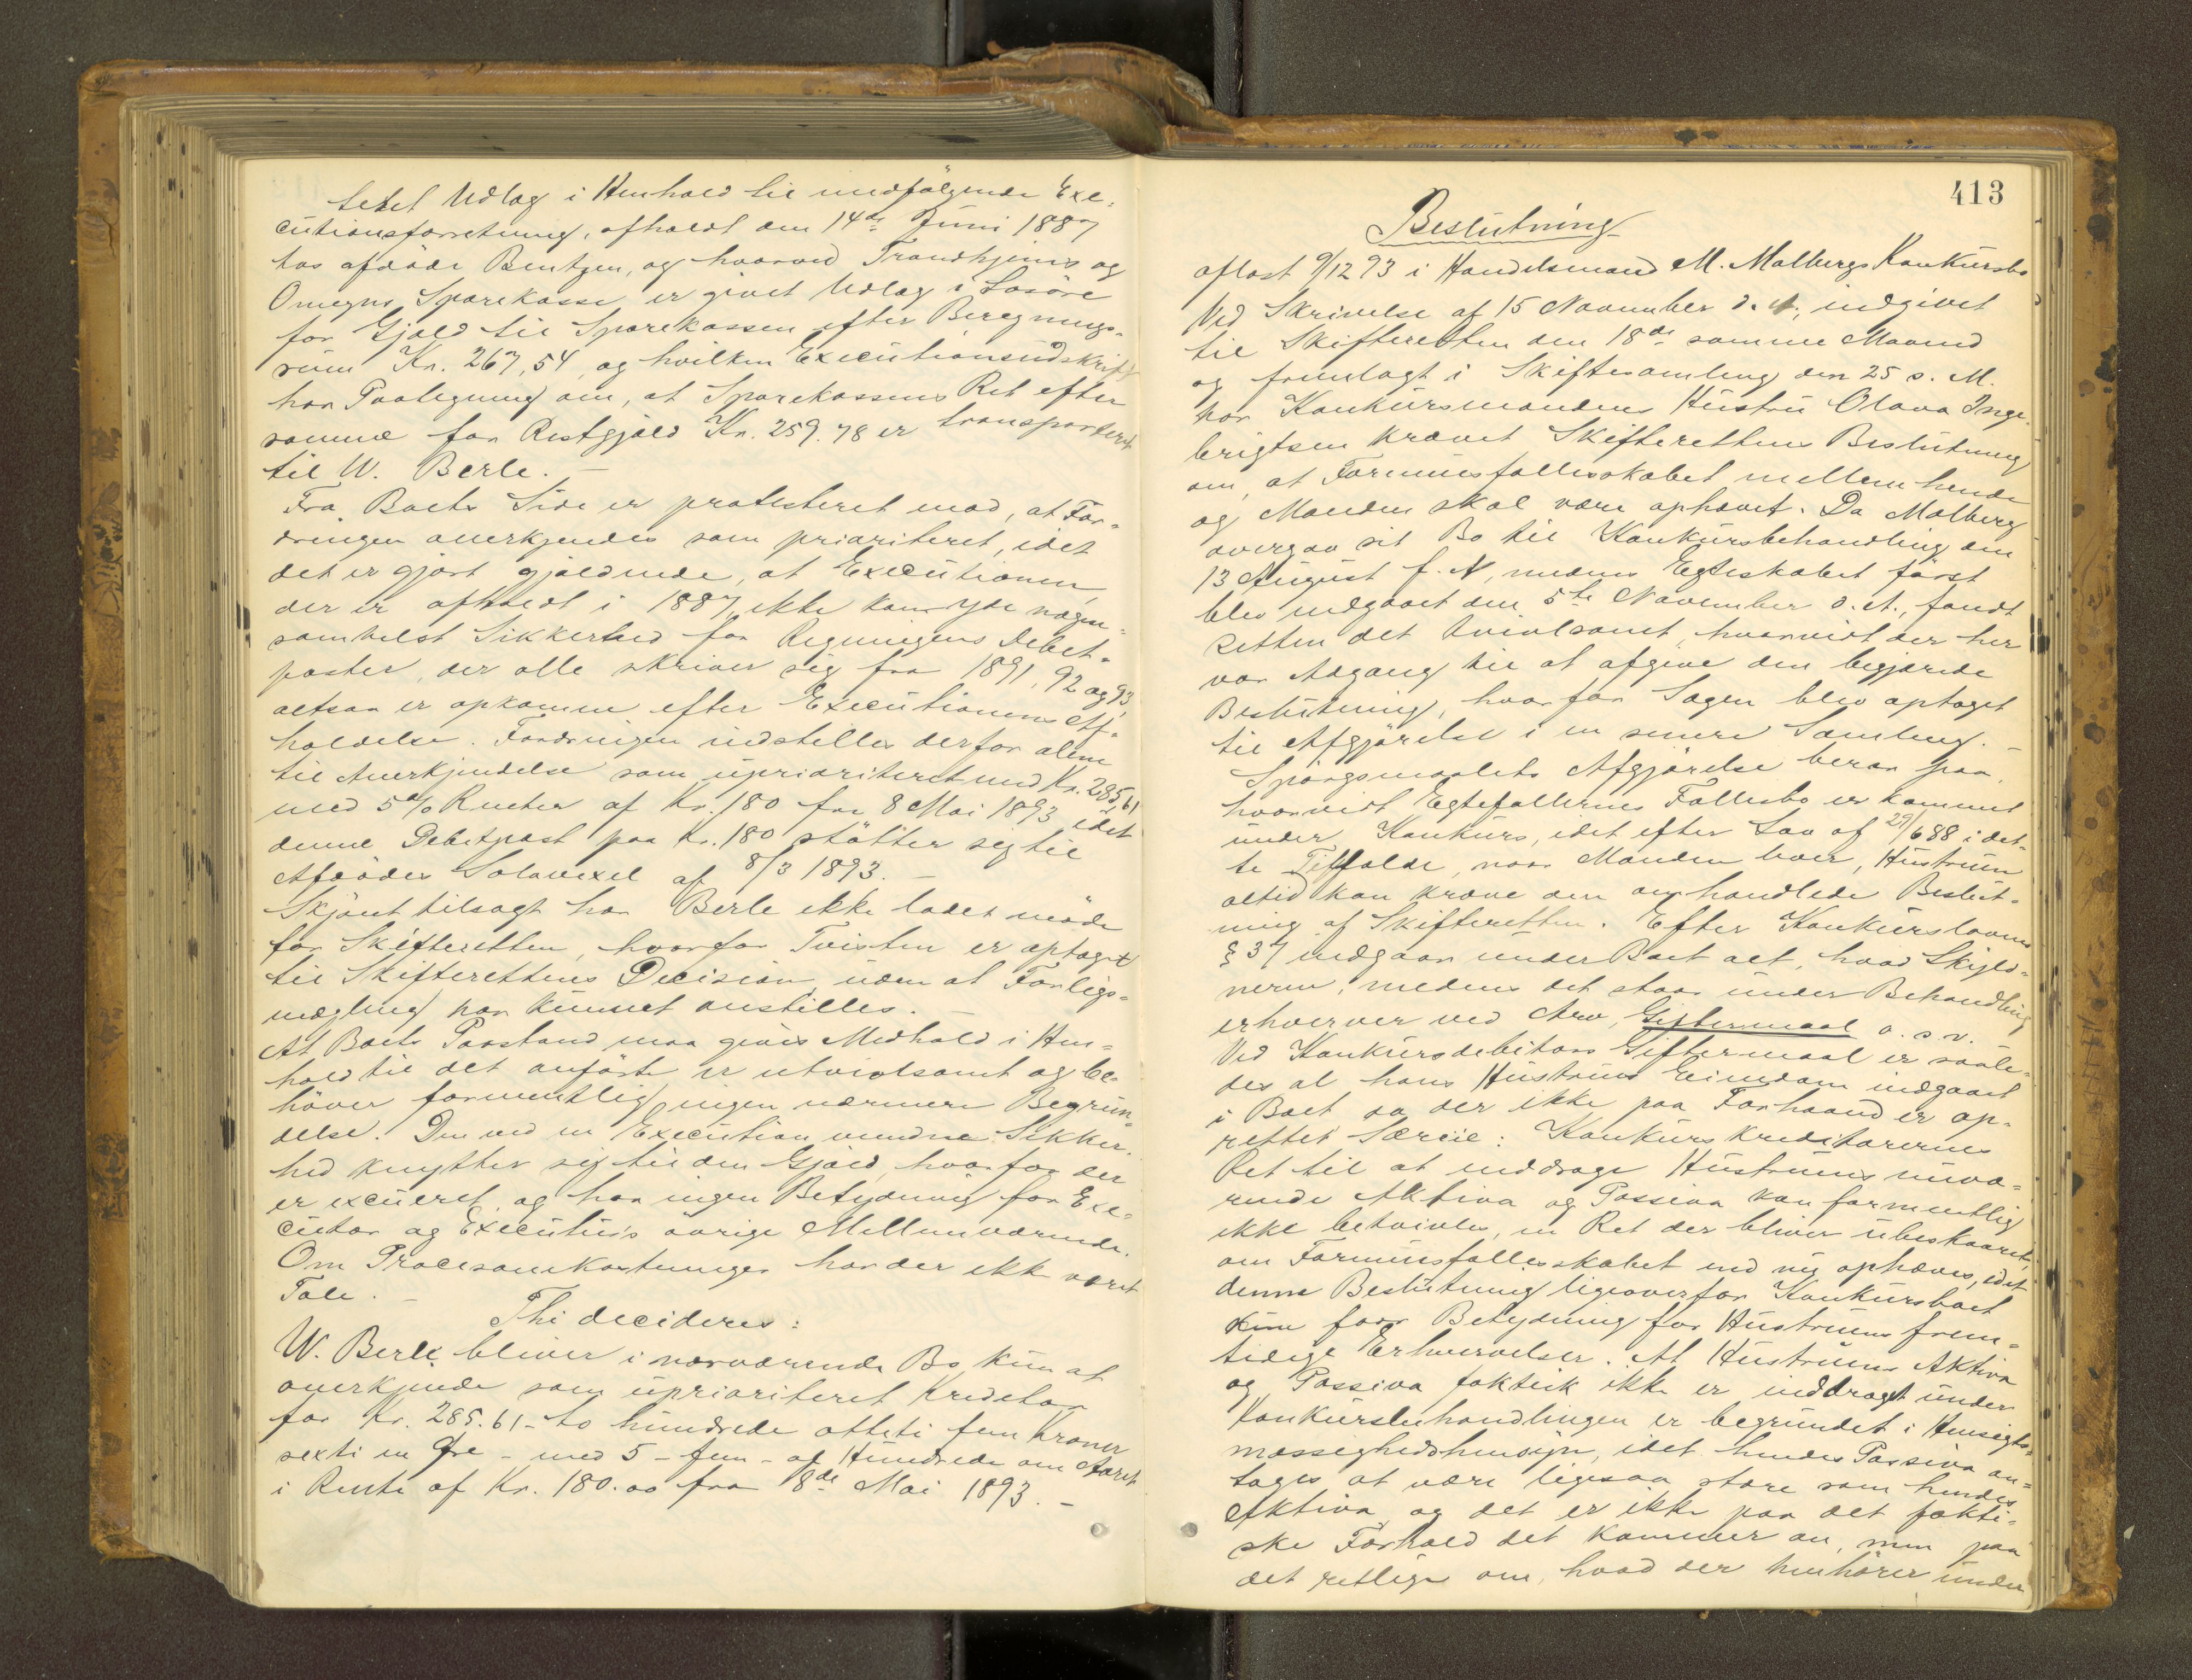 tetet Udlæg i Henhold til medfølgende Exe-
cutionsforretning, afholdt den 14de Juni 1887
hos afdøde Bentzen, og hvorved Trondhjems og
Omegns Sparekasse er givet Udlæg i Løsøre
for Gjæld til Sparekassen efter Beregnings-
rum Kr. 267,54, og hvilken Executionsudskrift
har Paategning om, at Sparekassens Ret efter
samme for Restgjæld Kr. 259.78 er transporteret
til W. Berle. —
Fra Boets Side er protesteret mod, at For-
dringen anerkjendes som prioriteret, idet
det er gjort gjældende, at Executionen,
der er afholdt i 1887, ikke kan yde nogen-
somhelst Sikkerhed for Regningens Debet-
poster, der alle skriver sig fra 1891, 92 og 93,
altsaa er opkomne efter Executionens Af-
holdelse. Fordringen indstilles derfor alene
til Anerkjendelse som uprioriteret med Kr. 285,61
med 5% Renter af Kr. 180 fra 8 Mai 1893, idet
denne Debetpost paa Kr. 180 støtter sig til
Afdødes Solavexel af 8/3 1893. —
Skjønt tilsagt har Berle ikke ladet møde
for Skifteretten, hvorfor Tvisten er optaget
til Skifterettens Decision, uden at Forligs-
mægling har kunnet anstilles. —
At Boets Paastand maa gives Medhold i Hen-
hold til det anførte er utvivlsomt og be-
høver formentlig ingen nærmere Begrun-
delse. Den ved en Execution vundne Sikker-
hed knytter sig til den Gjæld, hvorfor der
er exqueret, og har ingen Betydning for Exe-
cutor og Executus's øvrige Mellemværende.
Om Procesomkostninger har der ikke været
Tale. —
Thi decideres:
W. Berle bliver i nærværende Bo kun at
anerkjende som uprioriteret Kreditor
for Kr. 285.61 - to hundrede otteti fem Kroner
sexti en Øre - med 5 - fem - af Hundrede om Aaret
i Rente af Kr. 180.00 fra 8de Mai 1893. —
413
Beslutning
aflæst 9/12 93 i Handelsmand M. Malbergs Konkursbo
Ved Skrivelse af 15 November d. A., indgivet
til Skifteretten den 18de samme Maaned
og fremlagt i Skiftesamling den 25 s. M.
har Konkursmandens Hustru Olava Inge-
brigtsen krævet Skifterettens Beslutning
om, at Formuesfællesskabet mellem hende
og Manden skal være ophævet. Da Malberg
overgav sit Bo til Konkursbehandling den
13 August f. A., medens Egteskabet først
blev indgaaet den 5te November d. A., fandt
Retten det tvivlsomt, hvorvidt der her
var Adgang til at afgive den begjærede
Beslutning, hvorfor Sagen blev optaget
til Afgjørelse i en senere Samling. —
Spørgsmaalets Afgjørelse beror paa,
hvorvidt Egtefællernes Fællesbo er kommet
under Konkurs, idet efter Lov af 29/6 88 i det-
te Tilfælde, naar Manden lever, Hustruen
altid kan kræve den omhandlede Beslut-
ning af Skifteretten. Efter Konkurslovens
§ 37 indgaar under Boet alt, hvad Skyld-
neren, medens det staar under Behandling
erhverver ved Arv, Giftermaal o. s. v.
Ved Konkursdebitors Giftermaal er saale-
des al hans Hustrues Eiendom indgaaet
i Boet, da der ikke paa Forhaand er op-
rettet Særeie: Konkurskreditorernes
Ret til at inddrage Hustruens nuvæ-
rende Aktiva og Passiva kan formentlig
ikke betvivles, en Ret der bliver ubeskaaret,
om Formuesfællesskabet end nu ophæves, idet
denne Beslutning ligeoverfor Konkursboet
kun faar Betydning for Hustruens frem-
tidige Erhvervelser. At Hustruens Aktiva
og Passiva faktisk ikke er inddraget under
Konkursbehandlingen er begrundet i Hensigts-
mæssighedshensyn, idet hendes Passiva an-
tages at være ligesaa store som hendes
Aktiva, og det er ikke paa det fakti-
ske Forhold det kommer an, men paa
det retlige om, hvad der henhører under